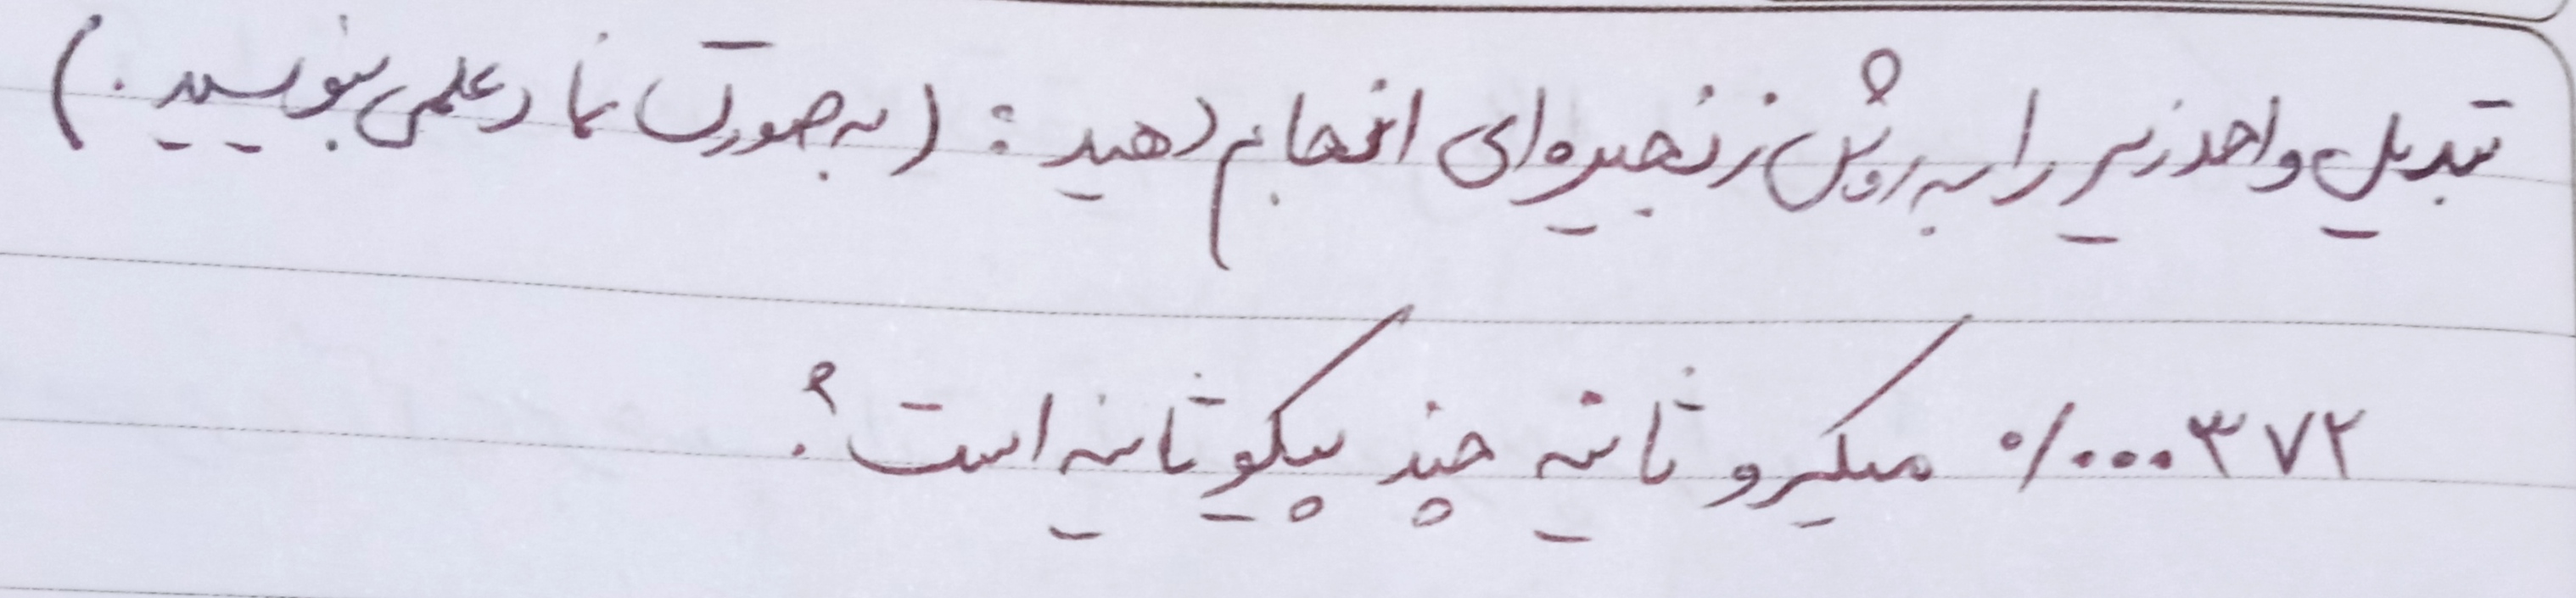 تبدیل واحد زیر را به روش زنجیره‌ای انجام دهید : (به صورت نماد علمی بنویسید.)
۰/۰۰۰۳۷۲ میکروثانیه چند پیکوثانیه است؟